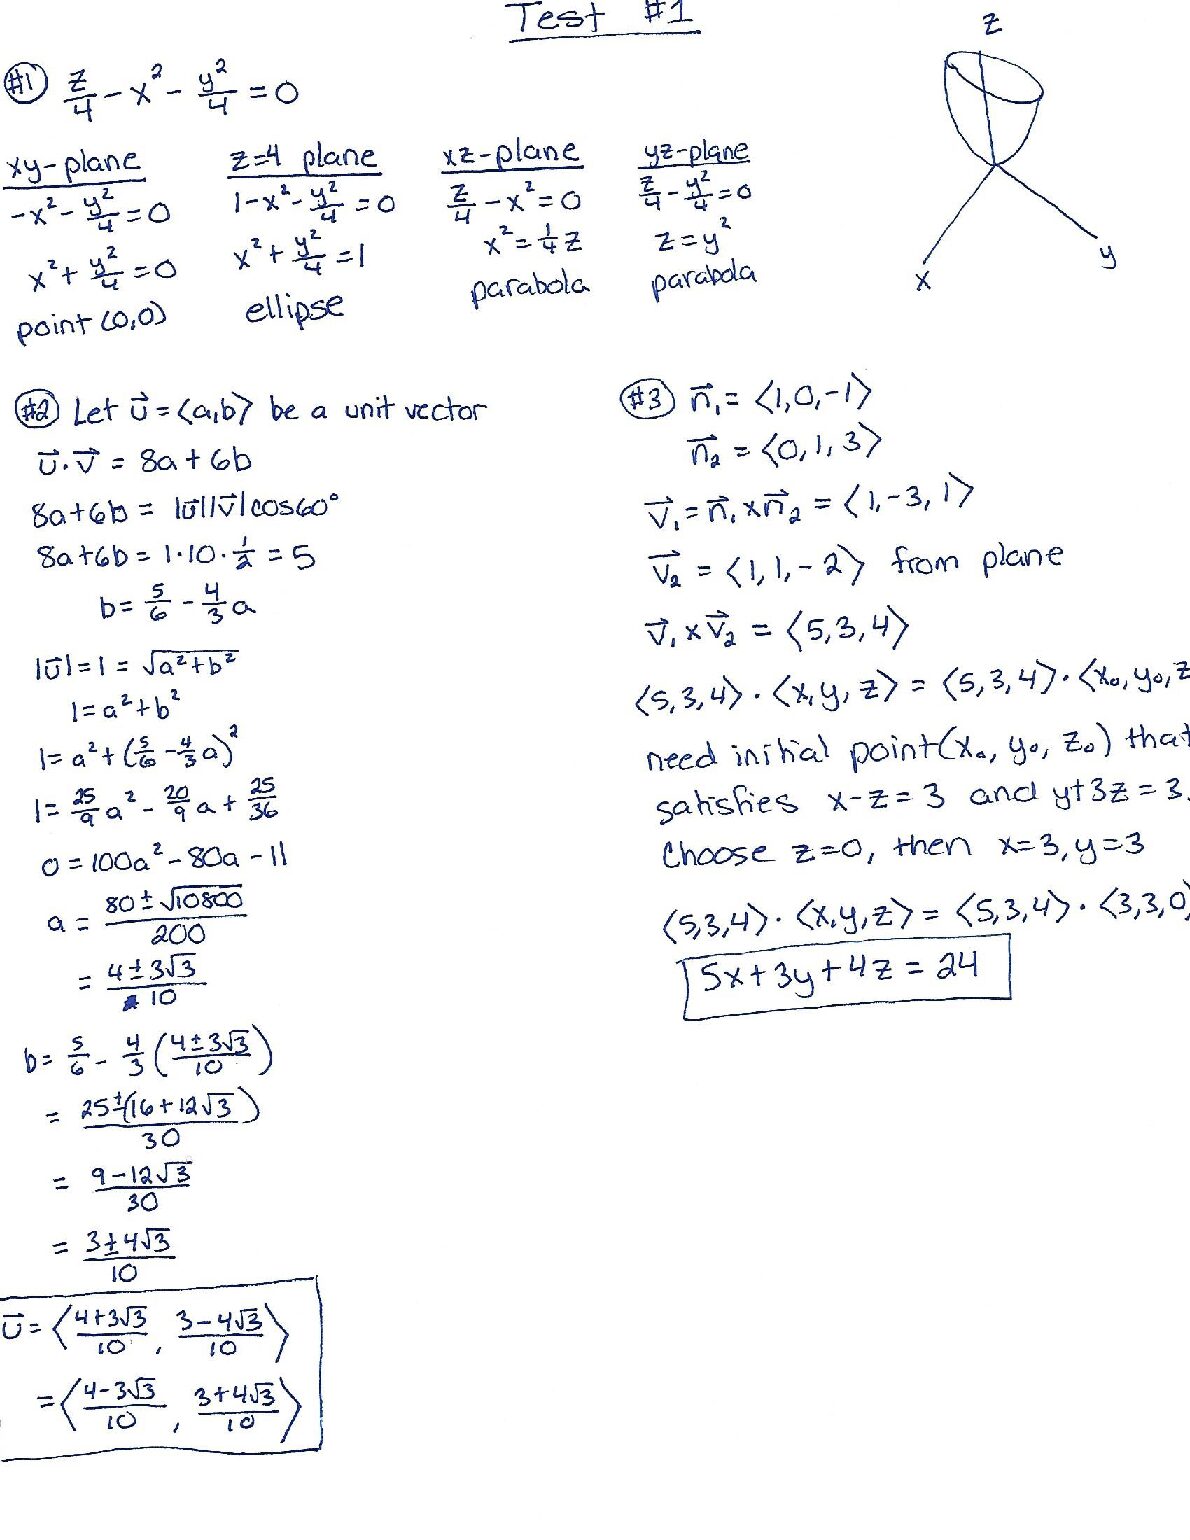 Test #1
#1 z/4 - x² - y²/4 = 0
xy-plane
-x² - y²/4 = 0
x² + y²/4 = 0
point (0,0)
z=4 plane
1 - x² - y²/4 = 0
x² + y²/4 = 1
ellipse
xz-plane
z/4 - x² = 0
x² = 1/4 z
parabola
yz-plane
z/4 - y²/4 = 0
z = y²
parabola
z
x
y
#2 Let u⃗ = ⟨a,b⟩ be a unit vector
u⃗ · v⃗ = 8a + 6b
8a + 6b = |u⃗||v⃗|cos60°
8a + 6b = 1·10·1/2 = 5
b = 5/6 - 4/3 a
|u⃗| = 1 = √(a² + b²)
1 = a² + b²
1 = a² + (5/6 - 4/3 a)²
1 = 25/9 a² - 20/9 a + 25/36
0 = 100a² - 80a - 11
a = (80 ± √10800)/200
= (4 ± 3√3)/10
b = 5/6 - 4/3 ((4 ± 3√3)/10)
= (25 ± (16 + 12√3))/30
= (9 - 12√3)/30
= (3 ± 4√3)/10
u⃗ = ⟨(4+3√3)/10, (3-4√3)/10⟩
= ⟨(4-3√3)/10, (3+4√3)/10⟩
#3 n⃗₁ = ⟨1,0,-1⟩
n⃗₂ = ⟨0,1,3⟩
v⃗₁ = n⃗₁ × n⃗₂ = ⟨1,-3,1⟩
v⃗₂ = ⟨1,1,-2⟩ from plane
v⃗₁ × v⃗₂ = ⟨5,3,4⟩
⟨5,3,4⟩ · ⟨x,y,z⟩ = ⟨5,3,4⟩ · ⟨x₀,y₀,z
need initial point (x₀, y₀, z₀) that
satisfies x-z=3 and y+3z=3.
Choose z=0, then x=3, y=3
⟨5,3,4⟩ · ⟨x,y,z⟩ = ⟨5,3,4⟩ · ⟨3,3,0⟩
5x + 3y + 4z = 24